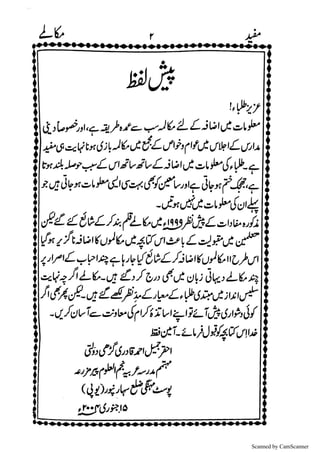 مفید ۲ مکالمے
پیش لفظ
عزیز طلباء!
معلومات میں اضافہ کے لئے مکالمہ سب سے عمدہ طریقہ ہے، اور خصوصاً دینی
مدارس کے اجلاس میں عوام و خواص کے مجمع میں مکالمہ بازی ہونا نہایت ہی مفید
ہے۔ طلباء کی معلومات میں اضافہ کے ساتھ ساتھ اس کے سبب حوصلہ بلند ہوتا
ہے، جھجک ختم ہو جاتی ہے اور سامعین کو بھی بہت سی ایسی معلومات ہو جاتی ہیں جو
پہلے ان کی معلومات میں نہیں ہوتیں۔
مذکورہ مفادات کے پیش نظر ۱۹۹۹ء میں مکالمے قلم بند کر کے شائع کئے گئے لیکن
متعلمین میں مقبولیت کے باعث اس کتابچہ میں مکالموں کا اضافہ ناگزیر ہو گیا
اس طرح ۱۱ مکالموں کا اضافہ کر کے شائع کیا جا رہا ہے چند احباب کے اصرار پر
چند مکالمے دیہاتی زبان میں بھی درج کر دئے گئے ہیں۔ مکالمے اگرچہ نہایت
سلیس انداز میں مبتدی طلباء کے معیار کے مد نظر لکھے گئے ہیں۔ لیکن پھر بھی اگر
کوئی دشواری پیش آئے تو اپنے اساتذہ کرام کی معاونت سے آسان کریں۔
خدا اس کتابچہ کو قبول فرمائے۔ آمین فقط
احقر جمیل احمد قادری گڑھی دولتی
مہتمم مدرسہ عربیہ نجم العلوم پیر مزرعہ
پوسٹ مہنگی ضلع سہارنپور (یوپی)
۱۵ جنوری ۲۰۰۴ء
Scanned by CamScanner